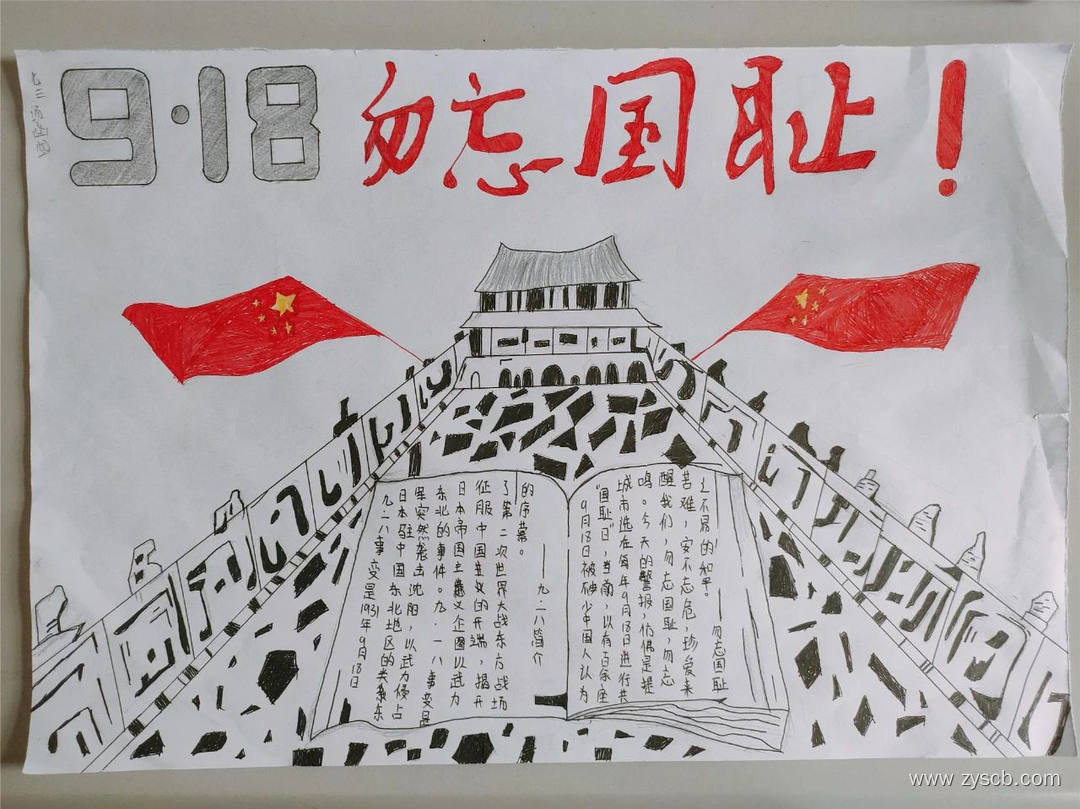 9·18 勿忘国耻！
九.一八事变是1931年9月18日
日本驻中国东北地区的关东
军突然袭击沈阳，以武力侵占
东北的事件。九·一八事变是
日本帝国主义企图以武力
征服中国的开端，揭开
了第二次世界大战东方战场
的序幕。
——九.一八简介
9月18日被少中国人认为
“国耻”日，当前，以有百余座
城市选在每年9月18日进行共
鸣。今天的警报，仿佛是提
醒我们，勿忘国耻，勿忘
苦难，安不忘危，珍爱来
之不易的和平。
——勿忘国耻
www.zyscb.com